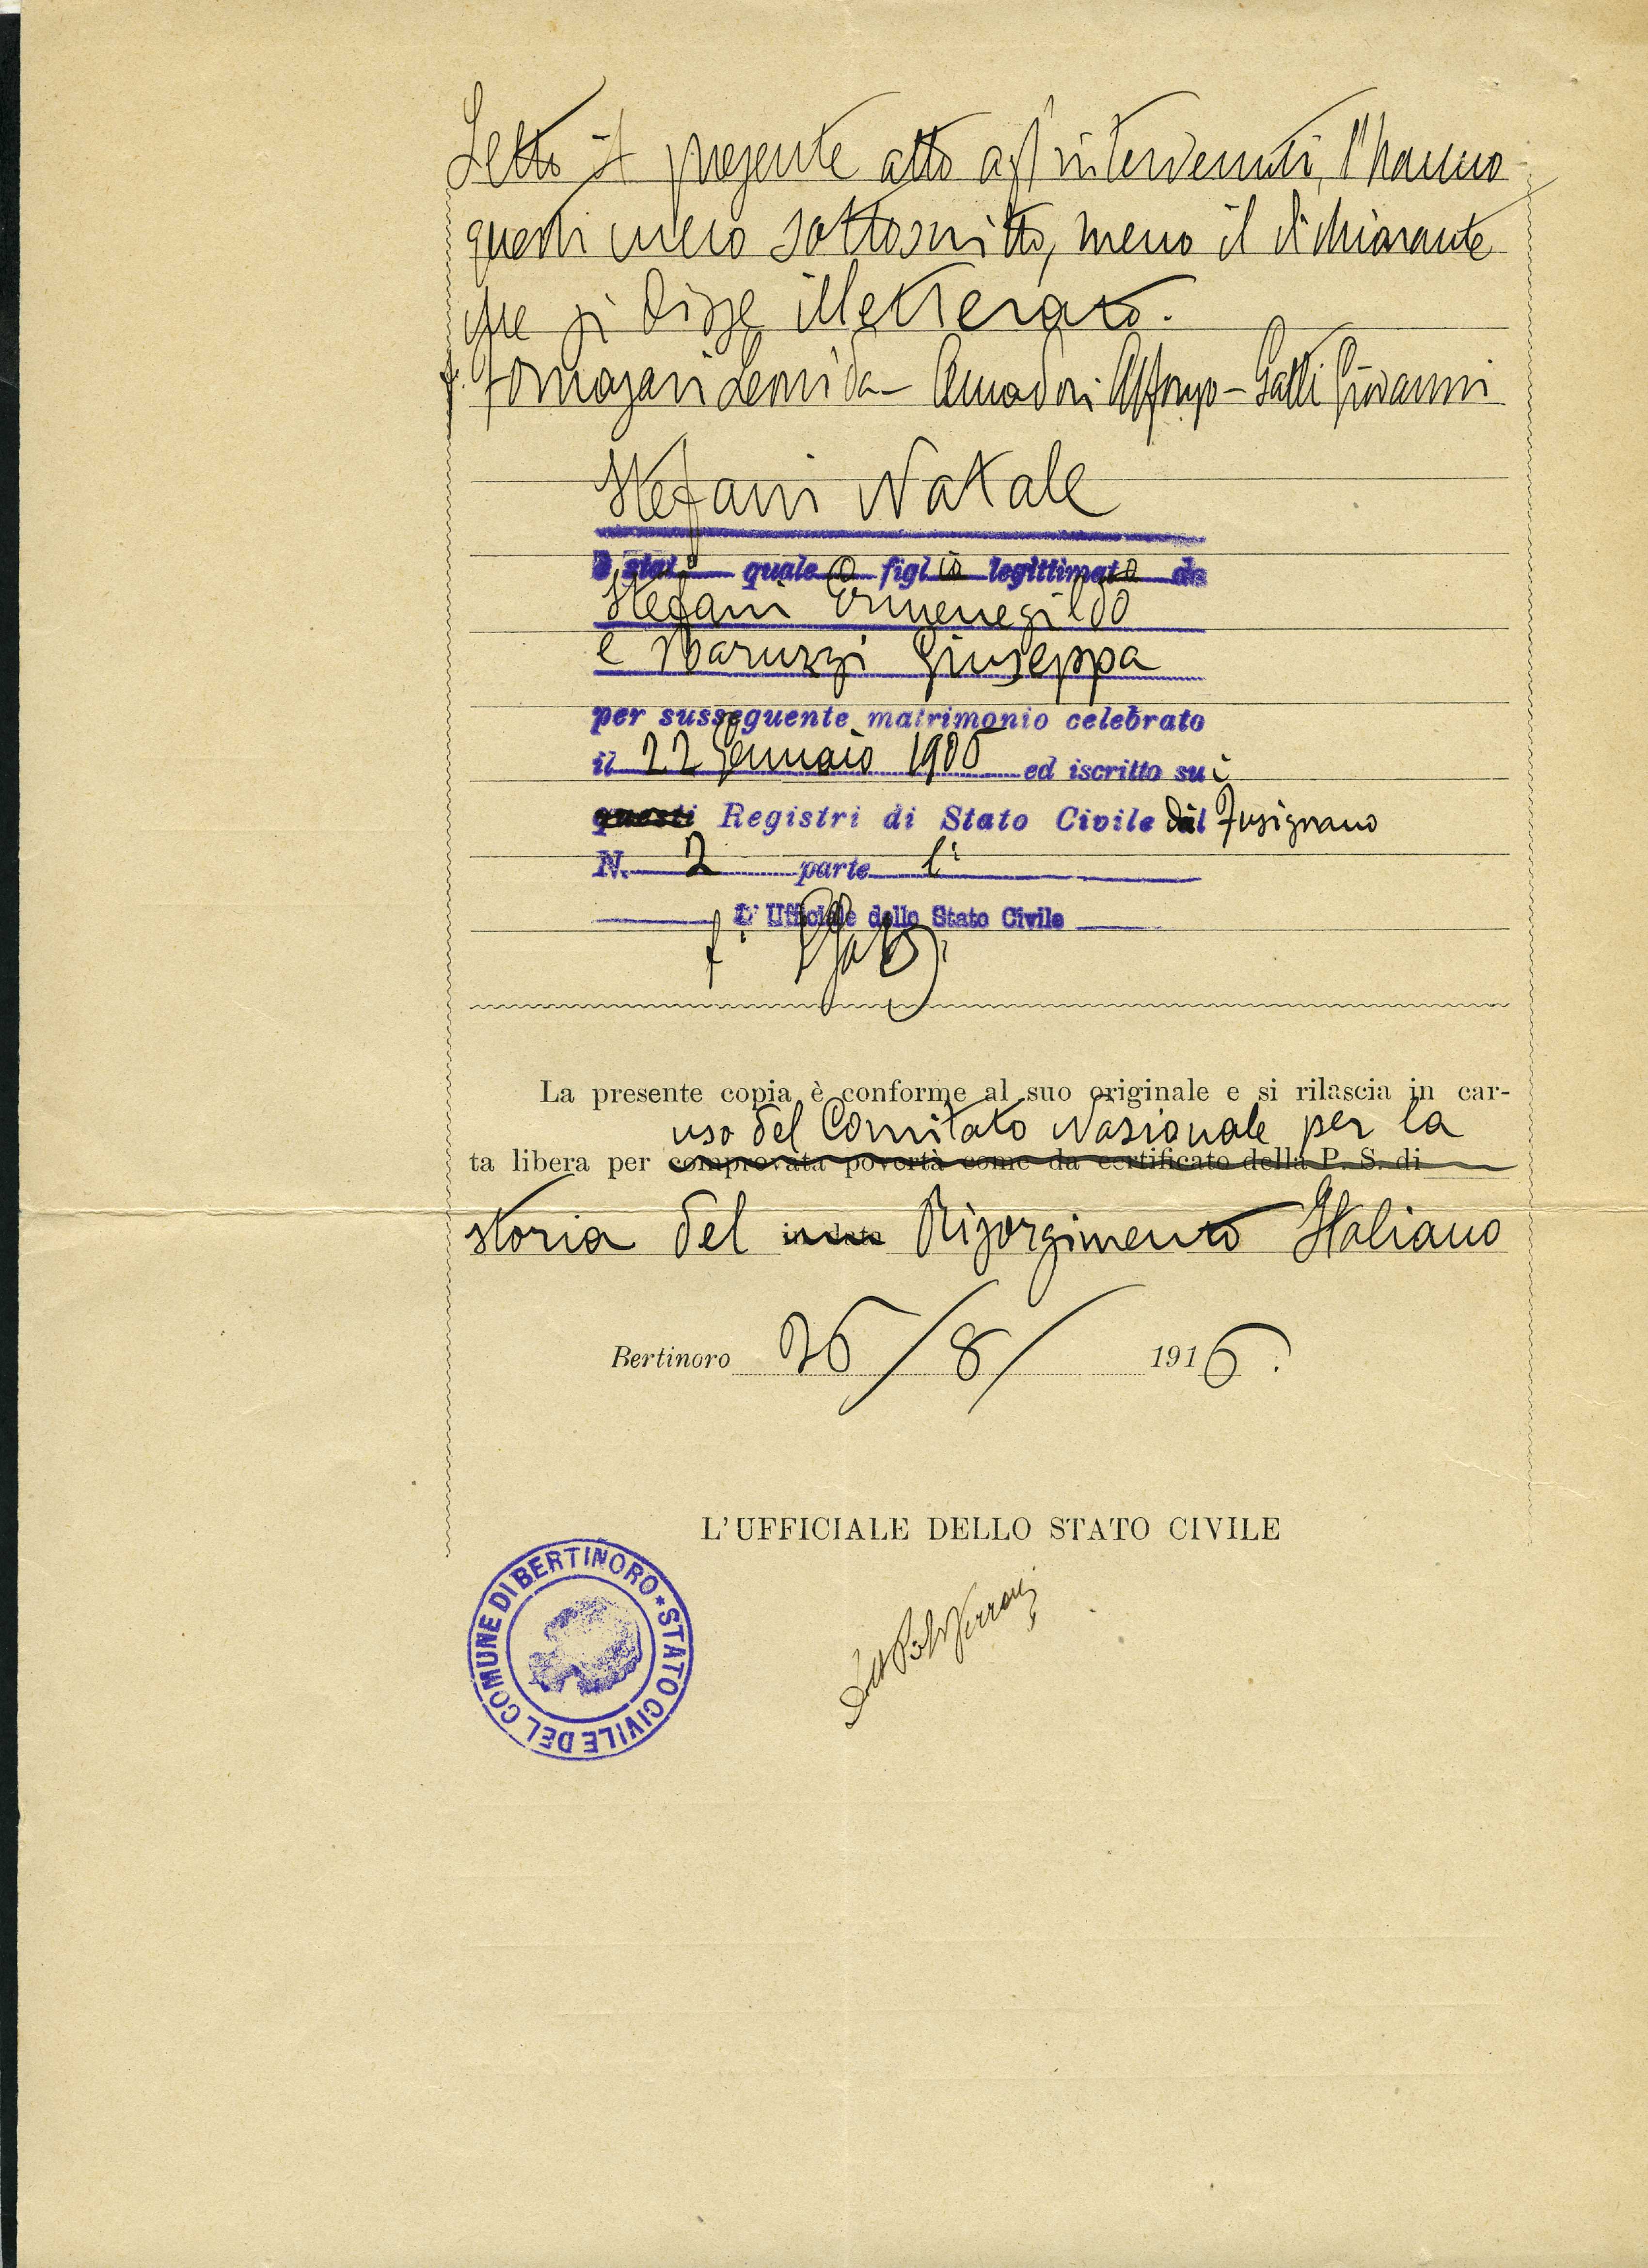 Letto il presente atto agl'intervenuti, l'hanno
questi meco sottoscritto, meno il dichiarante
che si disse illetterato.
f. Tomasari Leonida – Amadori Alfonso – Gatti Giovanni
Stefani Natale
È stato quale figlio legittimato da
Stefani Ermenegildo
e Baruzzi Giuseppa
per susseguente matrimonio celebrato
il 22 Gennaio 1905 ed iscritto sui
questi Registri di Stato Civile di Fusignano
N. 2 parte 1ª
L'Ufficiale dello Stato Civile
f.
La presente copia è conforme al suo originale e si rilascia in car-
uso del Comitato Nazionale per la
ta libera per comprovata povertà come da certificato della P. S. di
storia del Risorgimento Italiano
Bertinoro 26/8/ 1916.
L'UFFICIALE DELLO STATO CIVILE
STATO CIVILE DEL COMUNE DI BERTINORO